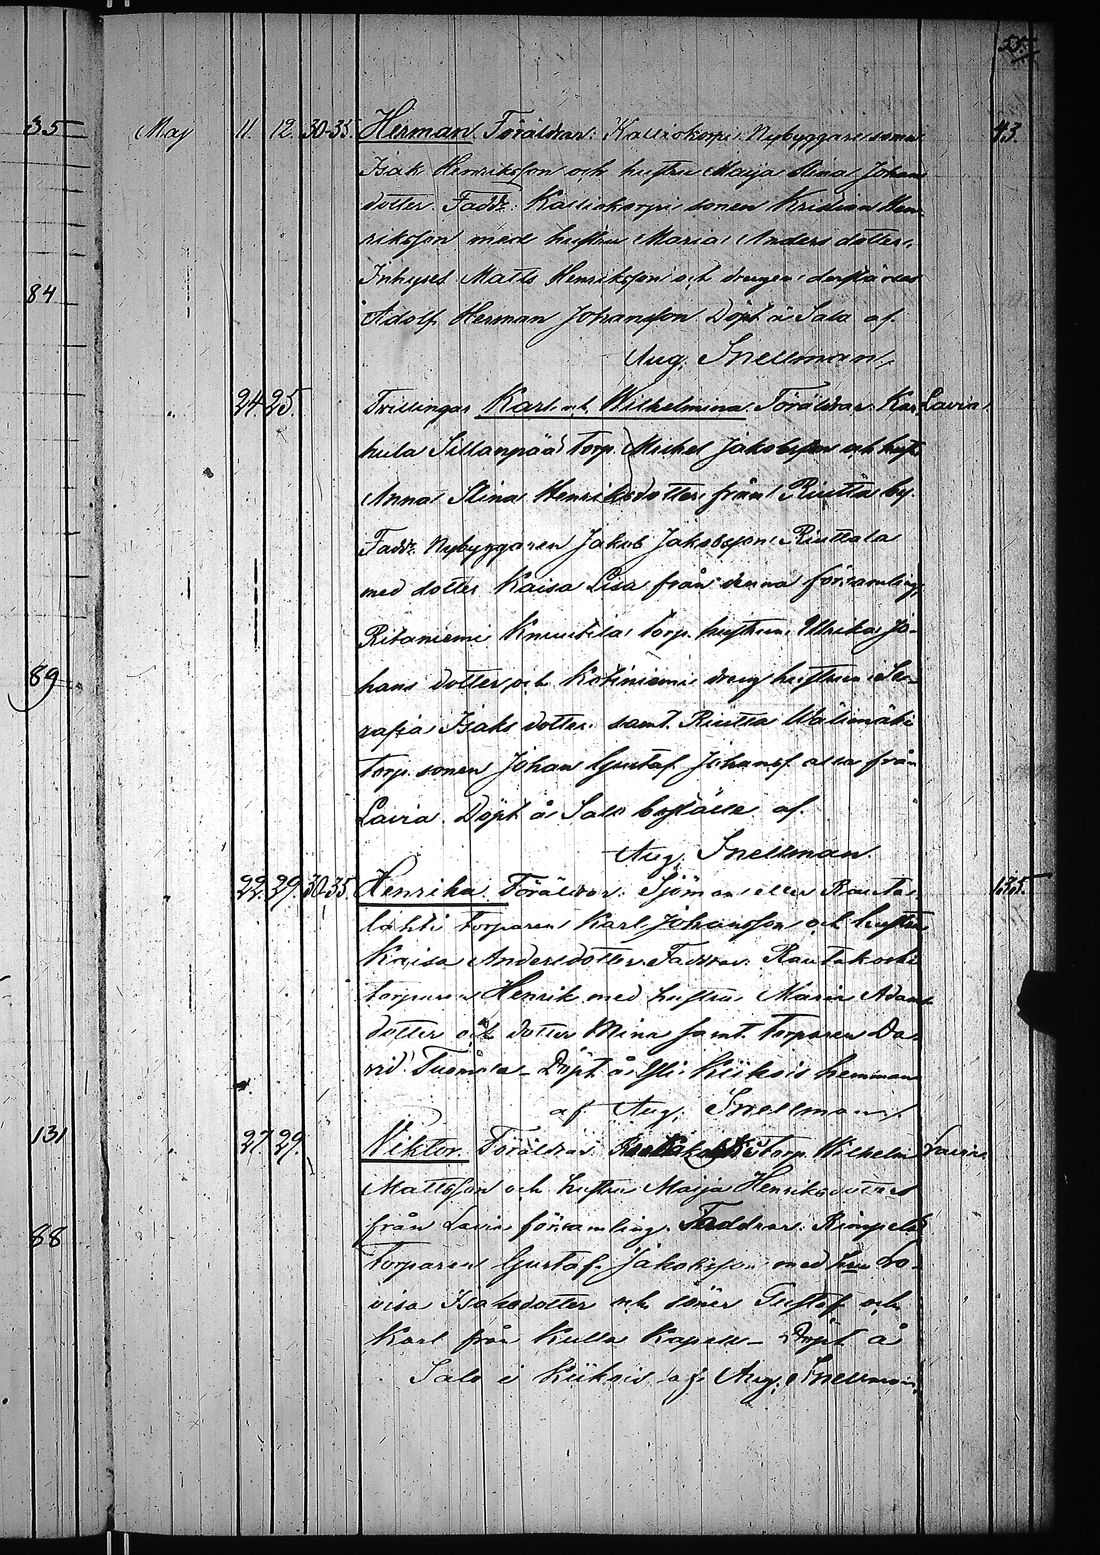 55.
35 May 11. 12. 30-35. Herman. Föräldrar: Kalliokorpi Nybyggare sonen 43.
Isak Henriksson och hustru Maija Stina Johans
dotter. Fadd: Kalliokorpi sonen Kristian Hen-
riksson med hustru Maria Anders dotter,
Inhyses Matts Henriksson och drängen
84
Adolf Herman Johansson Döpt å Sala af.
Aug. Snellman,
24 25. Trillingar Karl och Wilhelmina. Föräldrar Kar Lavia.
hula Sillanpää Torp. Michel Jakobsson och hust.
Anna Stina Henriksdotter från Riutta by.
Fadd: Nybyggaren Jakob Jakobsson Riuttala
med dotter Kaisa Lisa från denna församling,
Ritaniemi Knuutila torp. hustrun Ulrika Jo-
89
hans dotter och Kotiniemi dräng hustrun Se-
rafia Isaks dotter. samt. Riutta Wälimäki
Torp. sonen Johan Gustaf Johansf. alla från
Lavia. Döpt å Sala af.
Aug. Snellman.
22. 29. 30-35. Henrika. Föräldrar: Sjöman eller Rauta- 135.
lahti torparen Karl Johansson och hustru
Kaisa Andersdotter. Faddrar: Rautakoski
torparen Henrik med hustru Maria Adams
dotter och dotter Mina samt Torparen Da-
vid Tuomola. Döpt å Yli Kiikois hemman
af Aug. Snellman
131
27. 29. Viktor. Föräldrar. Torp. Wilhelm Lavia.
Mattsson och hustru Maija Henriksdotter
från Lavia församling. Faddrar. Rimpelä
88
Torparen Gustaf Jakobsson med hu Lo-
visa Isaksdotter och söner Gustaf och
Karl från Kulla Kapell. Döpt å
Sala i Kiikois af Aug. Snellman.